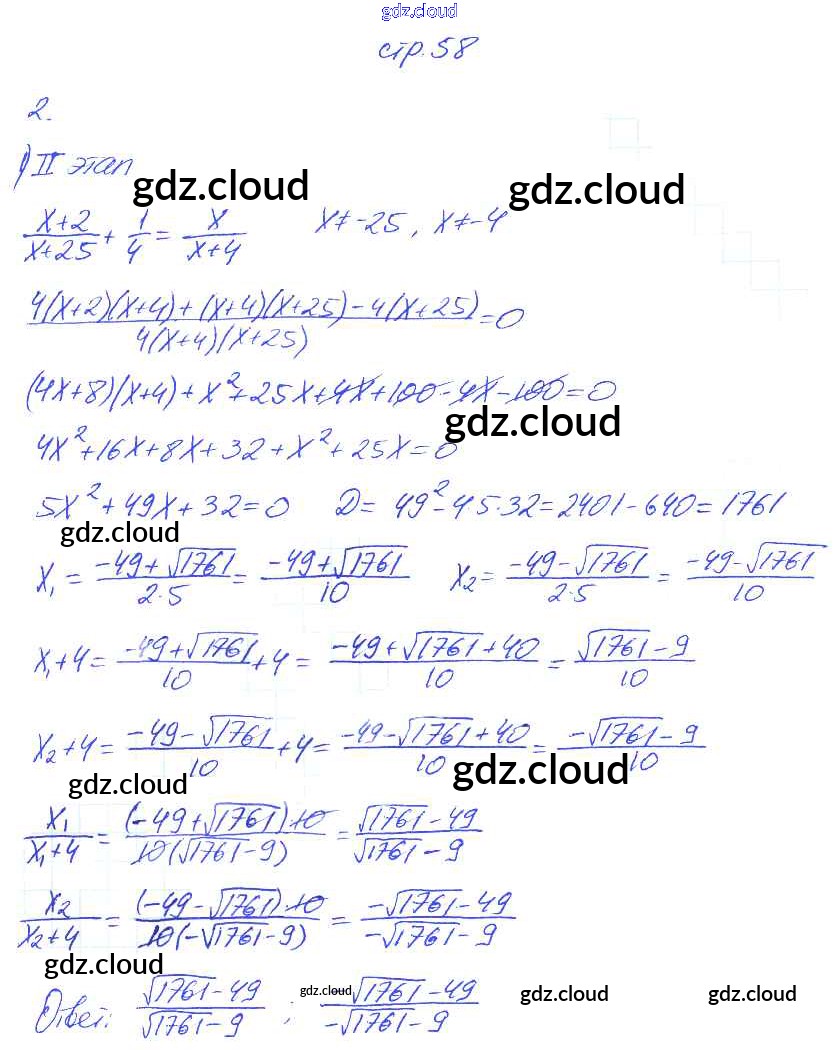 gdz.cloud
стр. 58
2.
1) II этап
gdz.cloud gdz.cloud
(x+2)/(x+25) + 1/4 = x/(x+4) x≠-25, x≠-4
(4(x+2)(x+4)+(x+4)(x+25)-4(x+25))/(4(x+4)(x+25)) = 0
(4x+8)(x+4)+x²+25x+4x+100-4x-100=0
gdz.cloud
4x²+16x+8x+32+x²+25x=0
5x²+49x+32=0 D= 49²-4·5·32=2401-640=1761
gdz.cloud
x₁ = (-49+√1761)/(2·5) = (-49+√1761)/10 x₂ = (-49-√1761)/(2·5) = (-49-√1761)/10
x₁+4 = (-49+√1761)/10 + 4 = (-49+√1761+40)/10 = (√1761-9)/10
x₂+4 = (-49-√1761)/10 + 4 = (-49-√1761+40)/10 = (-√1761-9)/10
gdz.cloud gdz.cloud
x₁/(x₁+4) = ((-49+√1761)·10)/(10(√1761-9)) = (√1761-49)/(√1761-9)
x₂/(x₂+4) = ((-49-√1761)·10)/(10(-√1761-9)) = (-√1761-49)/(-√1761-9)
gdz.cloud
Ответ: (√1761-49)/(√1761-9) ; (-√1761-49)/(-√1761-9)
gdz.cloud gdz.cloud gdz.cloud